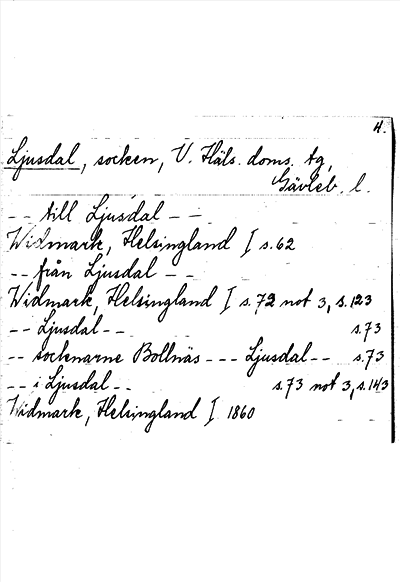 4.
Ljusdal, socken, V. Häls. doms. tg,
Gävleb. l.
-- till Ljusdal --
Widmark, Helsingland I s.62
-- från Ljusdal --
Widmark, Helsingland I s.72 not 3, s.123
-- Ljusdal -- s.73
-- socknarne Bollnäs --- Ljusdal -- s.73
-- i Ljusdal -- s.73 not 3, s.143
Widmark, Helsingland I 1860